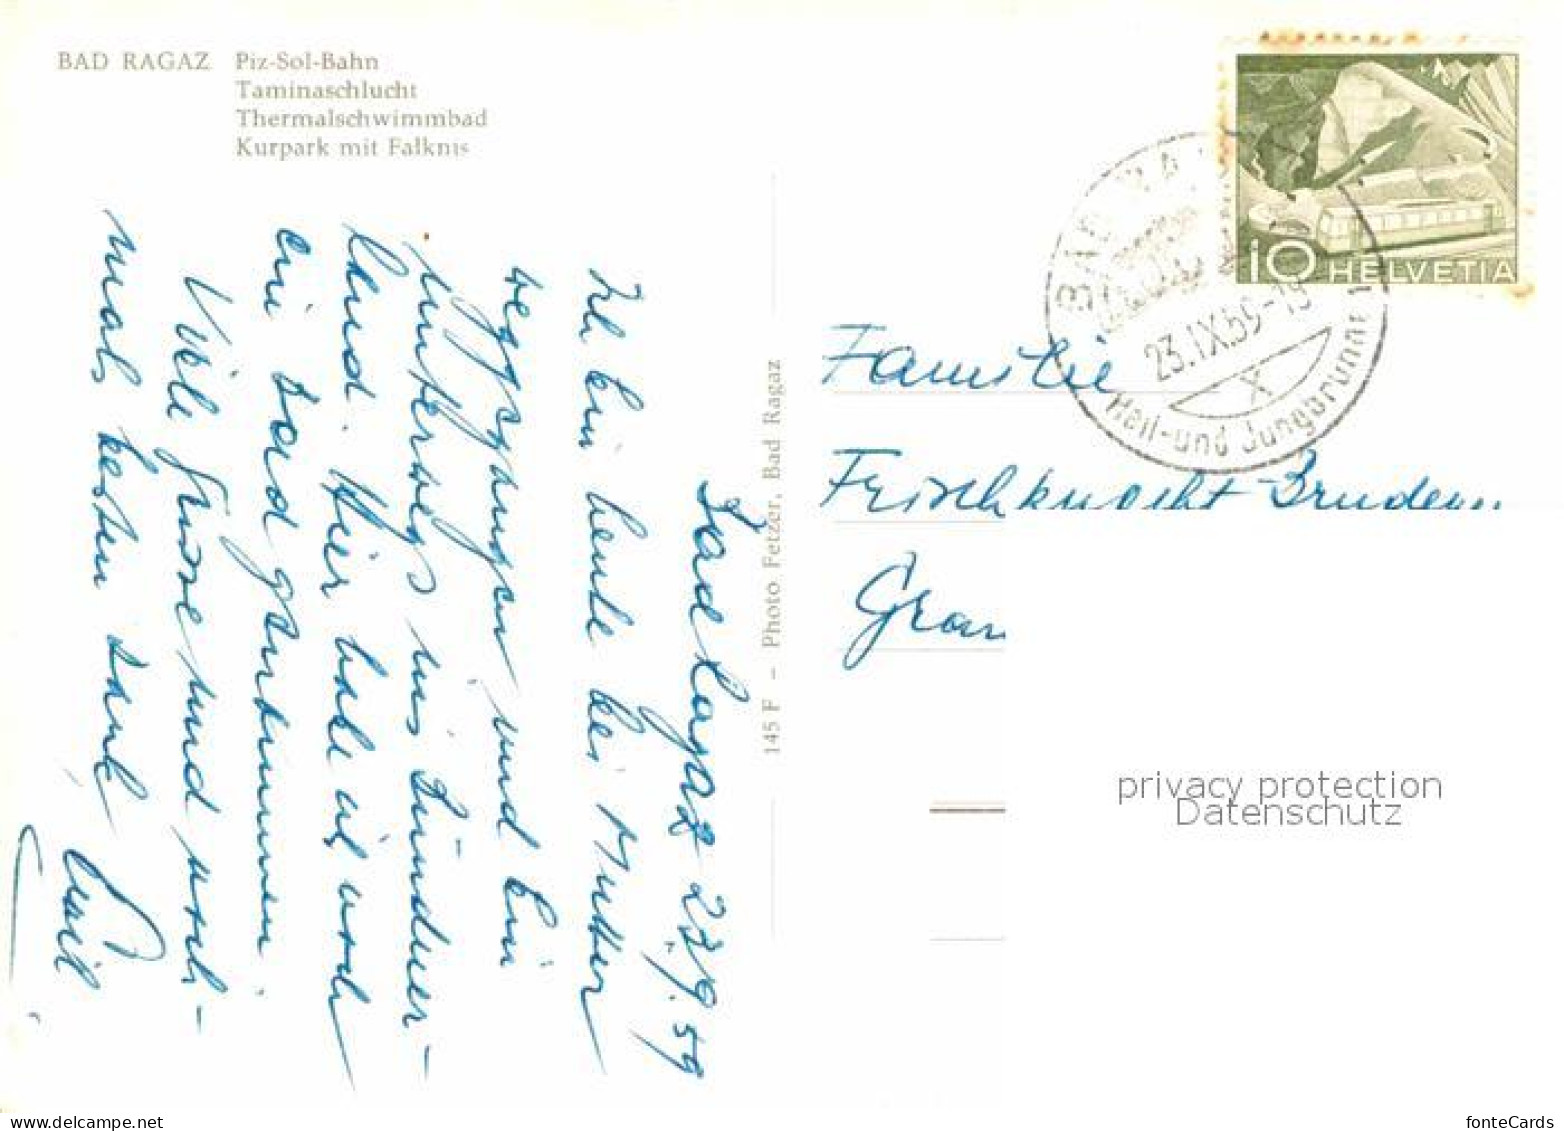 BAD RAGAZ Piz-Sol-Bahn
Taminaschlucht
Thermalschwimmbad
Kurpark mit Falknis
10 HELVETIA
BAD RAGAZ
23.IX.59-19
X
Heil- und Jungbrunnen
Bad Ragaz 23.9.59
Ich bin heute bei Mutter
weggegangen und bin
unterwegs ins Bündner-
land. Hier habe ich noch
ein Bad genommen.
Viele Grüsse und noch-
mals besten Dank
Emil
145 F – Photo Fetzer, Bad Ragaz
Familie
Frischknecht-Bruderer
privacy protection
Datenschutz
www.delcampe.net
fonteCards